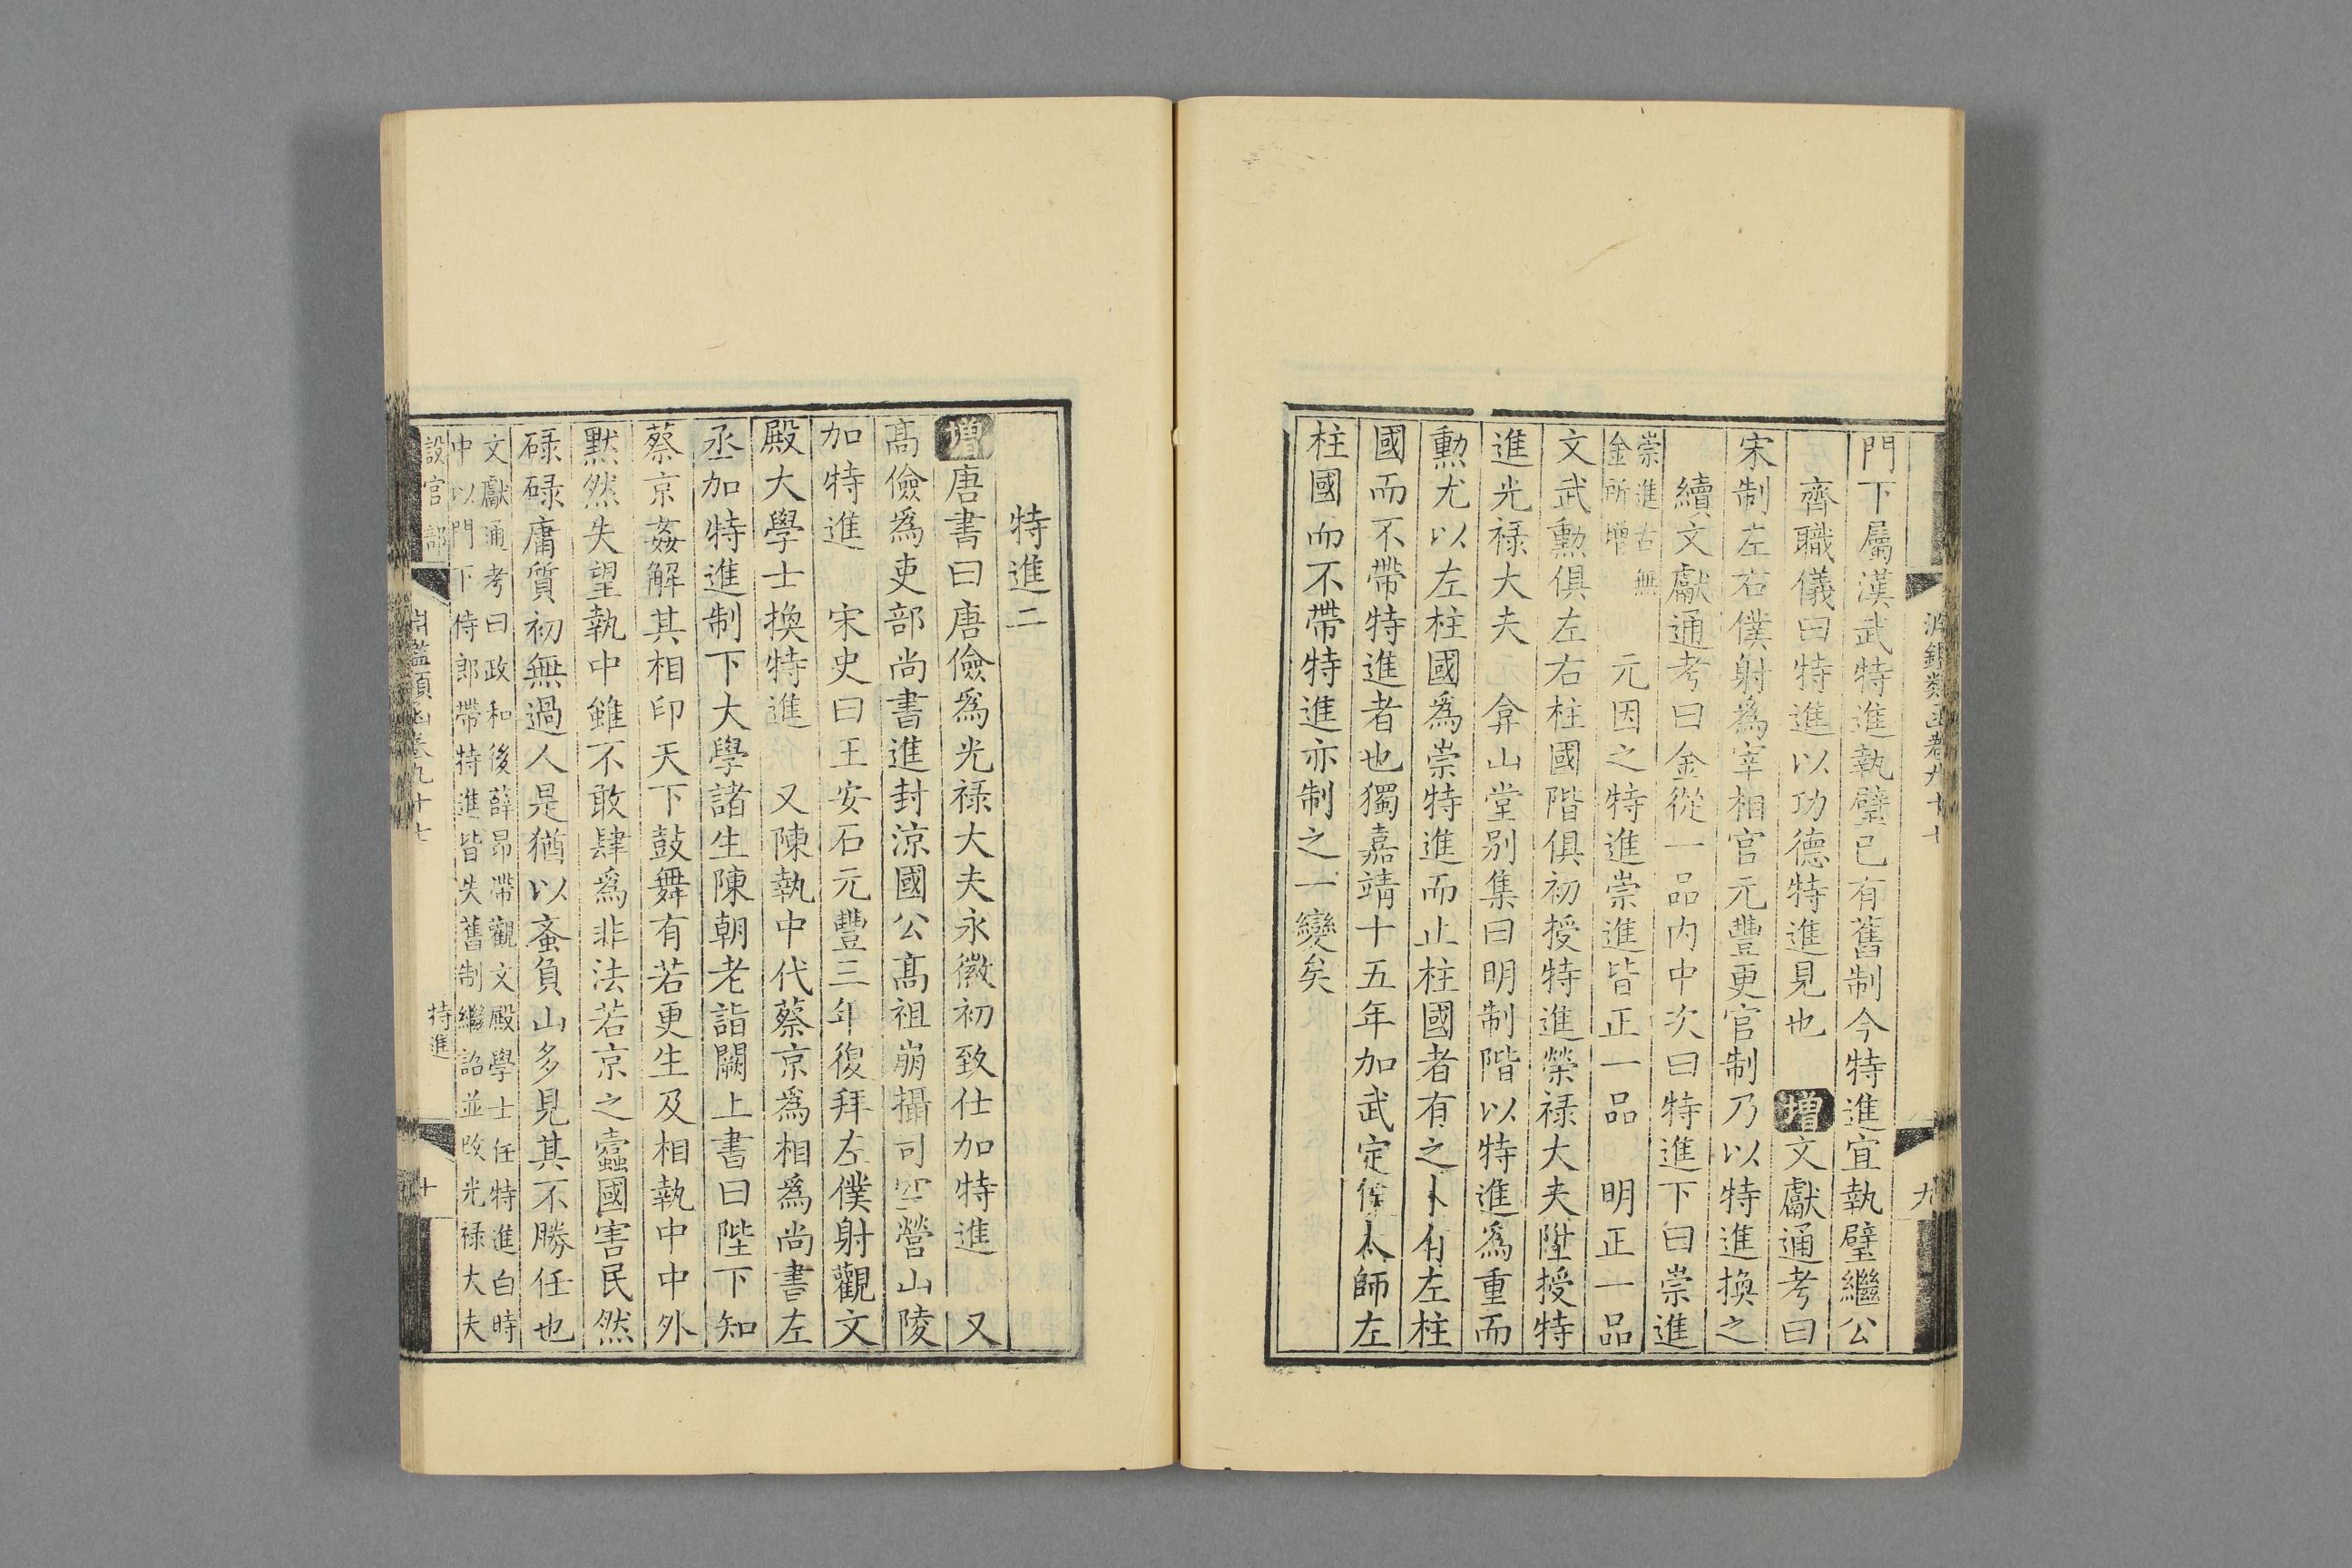 門下屬漢武特進執璧已有舊制今特進宜執璧繼公
齊職儀曰特進以功德特進見也 增文獻通考曰
宋制左右僕射為宰相官元豐更官制乃以特進換之
續文獻通考曰金從一品內中次曰特進下曰崇進
崇進古無
金所增
元因之特進崇進皆正一品 明正一品
文武勳俱左右柱國階俱初授特進榮祿大夫陞授特
進光祿大夫 弇山堂别集曰明制階以特進為重而
勲尤以左柱國為崇特進而止柱國者有之卜有左柱
國而不帶特進者也獨嘉靖十五年加武定侯太師左
柱國而不帶特進亦制之一變矣
淵鑑類函卷九十七
九
特進二
增唐書曰唐儉為光祿大夫永徽初致仕加特進 又
高儉為吏部尚書進封涼國公高祖崩攝司空營山陵
加特進 宋史曰王安石元豐三年復拜左僕射觀文
殿大學士換特進 又陳執中代蔡京為相為尚書左
丞加特進制下大學諸生陳朝老詣闕上書曰陛下知
蔡京姦解其相印天下鼓舞有若更生及相執中中外
黙然失望執中雖不敢肆為非法若京之蠹國害民然
碌碌庸質初無過人是猶以蚉負山多見其不勝任也
文獻通考曰政和後薛昂帶觀文殿學士任特進白時
中以門下侍郎帶特進皆失舊制繼詔並改光祿大夫
設官部
淵鑑類函卷九十七
特進
十